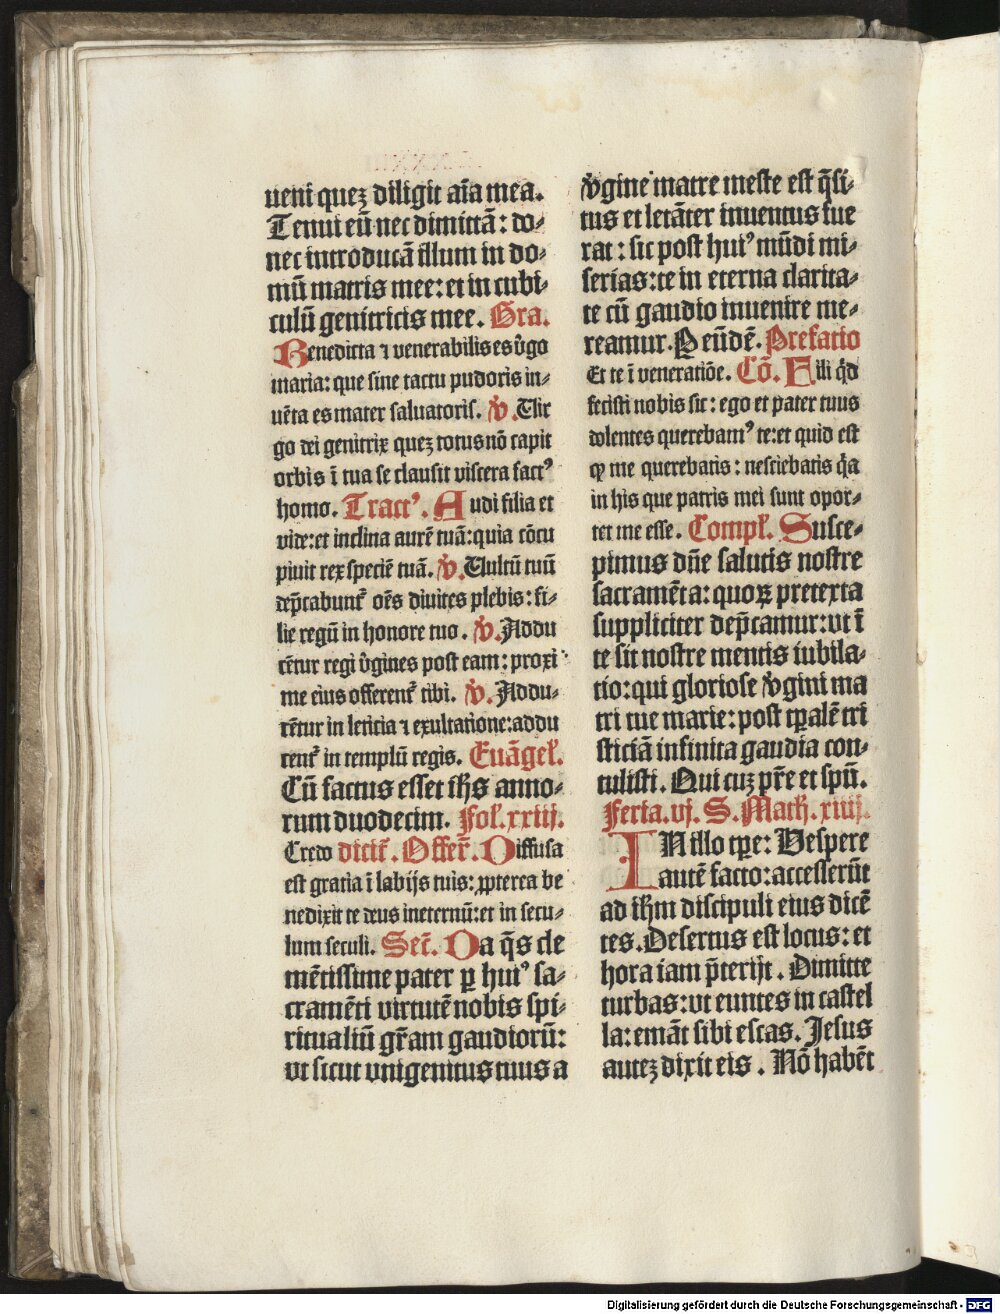 ueni quez diligit aīa mea.
Tenui eū nec dimittā: do⸗
nec introducā illum in do⸗
mū matris mee: et in cubi⸗
culū genitricis mee. Gra.
Benedicta ⁊ venerabilis es v̓go
maria: que sine tactu pudoris in⸗
uēta es mater saluatoris. ℣. Vir
go dei genitrix quez totus nō capit
orbis ī tua se clausit viscera factꝰ
homo. Tractꝰ. Audi filia et
vide: et inclina aurē tuā: quia cōcu
piuit rex speciē tuā. ℣. Vultū tuū
dep̄cabunt᷑ oēs diuites plebis: fi⸗
lie regū in honore tuo. ℣. Addu
cētur regi v̓gines post eam: proxi
me eius offerent᷑ tibi. ℣. Addu⸗
cētur in leticia ⁊ exultatione: addu
cent᷑ in templū regis. Euāgel᷑.
Cū factus esset ihs anno⸗
rum duodecim. Fol᷑. xxiij.
Credo dicit᷑. Offer̄. Diffusa
est gratia ī labijs tuis: ꝓpterea be
nedixit te deus ineternū: et in secu⸗
lum seculi. Sec̄. Da q̄s cle
mētissime pater ꝑ huiꝰ sa⸗
cramēti virtutē nobis spi⸗
ritualiū gr̄am gaudiorū:
vt sicut vnigenitus tuus a
v̓gine matre meste est q̄si⸗
tus et letāter inuentus fue
rat: sic post huiꝰ mūdi mi⸗
serias: te in eterna clarita⸗
te cū gaudio inuenire me⸗
reamur. Per eūdē. Prefatio
Et te ī veneratiōe. Cō. Fili q̇d
fecisti nobis sic: ego et pater tuus
dolentes querebamꝰ te: et quid est
ꝙ me querebatis: nesciebatis q̇a
in his que patris mei sunt opor⸗
tet me esse. Compl᷑. Susce⸗
pimus dn̄e salutis nostre
sacramēta: quoꝝ pretexta
suppliciter dep̄camur: vt ī
te sit nostre mentis iubila⸗
tio: qui gloriose v̓gini ma
tri tue marie: post tꝑalē tri
sticiā infinita gaudia con⸗
tulisti. Qui cuz pr̄e et spū.
Feria. vj. S. Math. xiiij.
IN illo tꝑe: Vespere
autē facto: accesserūt
ad ihm discipuli eius dicē
tes. Desertus est locus: et
hora iam p̄terijt. Dimitte
turbas: vt euntes in castel
la: emāt sibi escas. Jesus
autez dixit eis. Nō habēt
Digitalisierung gefördert durch die Deutsche Forschungsgemeinschaft - DFG